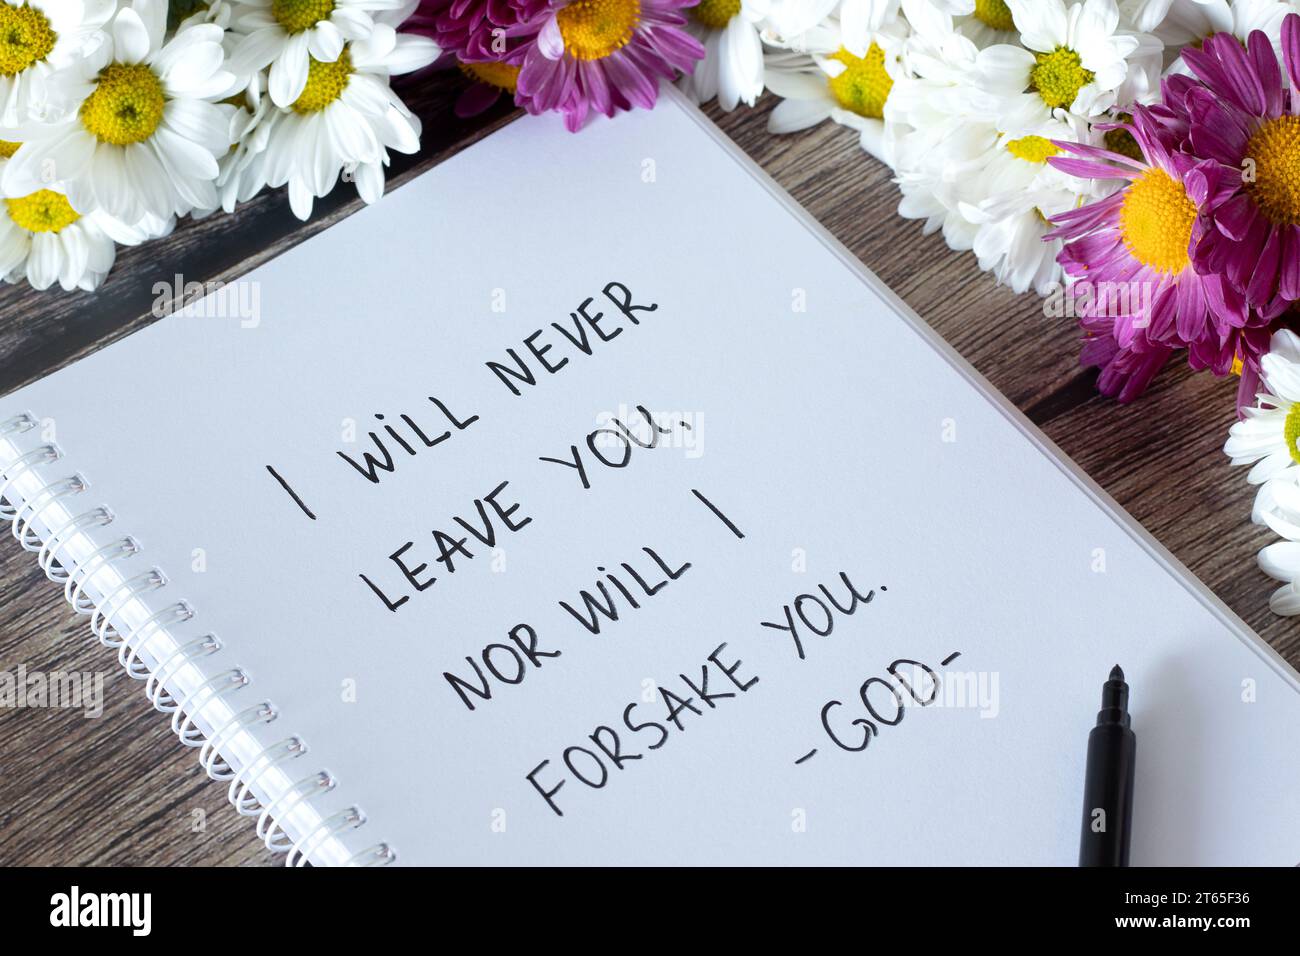 I WiLL NEVER
LEAVE YOU,
NOR WiLL I
FORSAKE YOU.
-GOD-
alamy
a
a
a
a
alamy
Image ID: 2T65F36
www.alamy.com